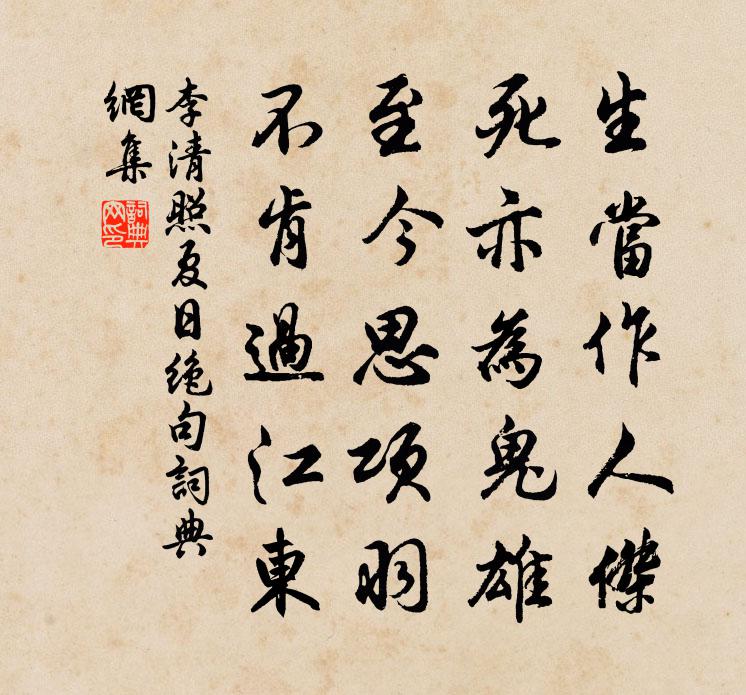 生當作人傑
死亦為鬼雄
至今思項羽
不肯過江東
李清照夏日绝句詞典
網集
詞典
网印